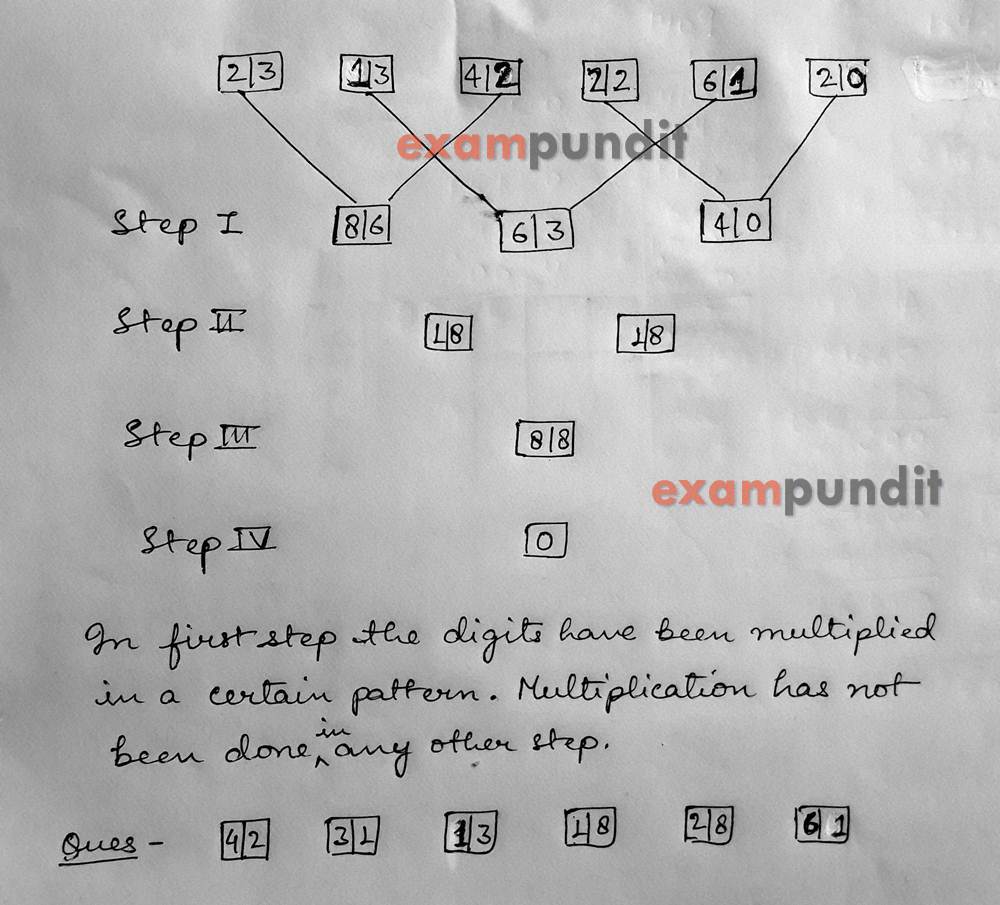 2|3 1|3 4|2 2|2 6|1 2|0
exampundit
Step I 8|6 6|3 4|0
Step II 1|8 1|8
Step III 8|8
exampundit
Step IV 0
In first step the digits have been multiplied
in a certain pattern. Multiplication has not
been done in any other step.
Ques - 4|2 3|1 1|3 1|8 2|8 6|1